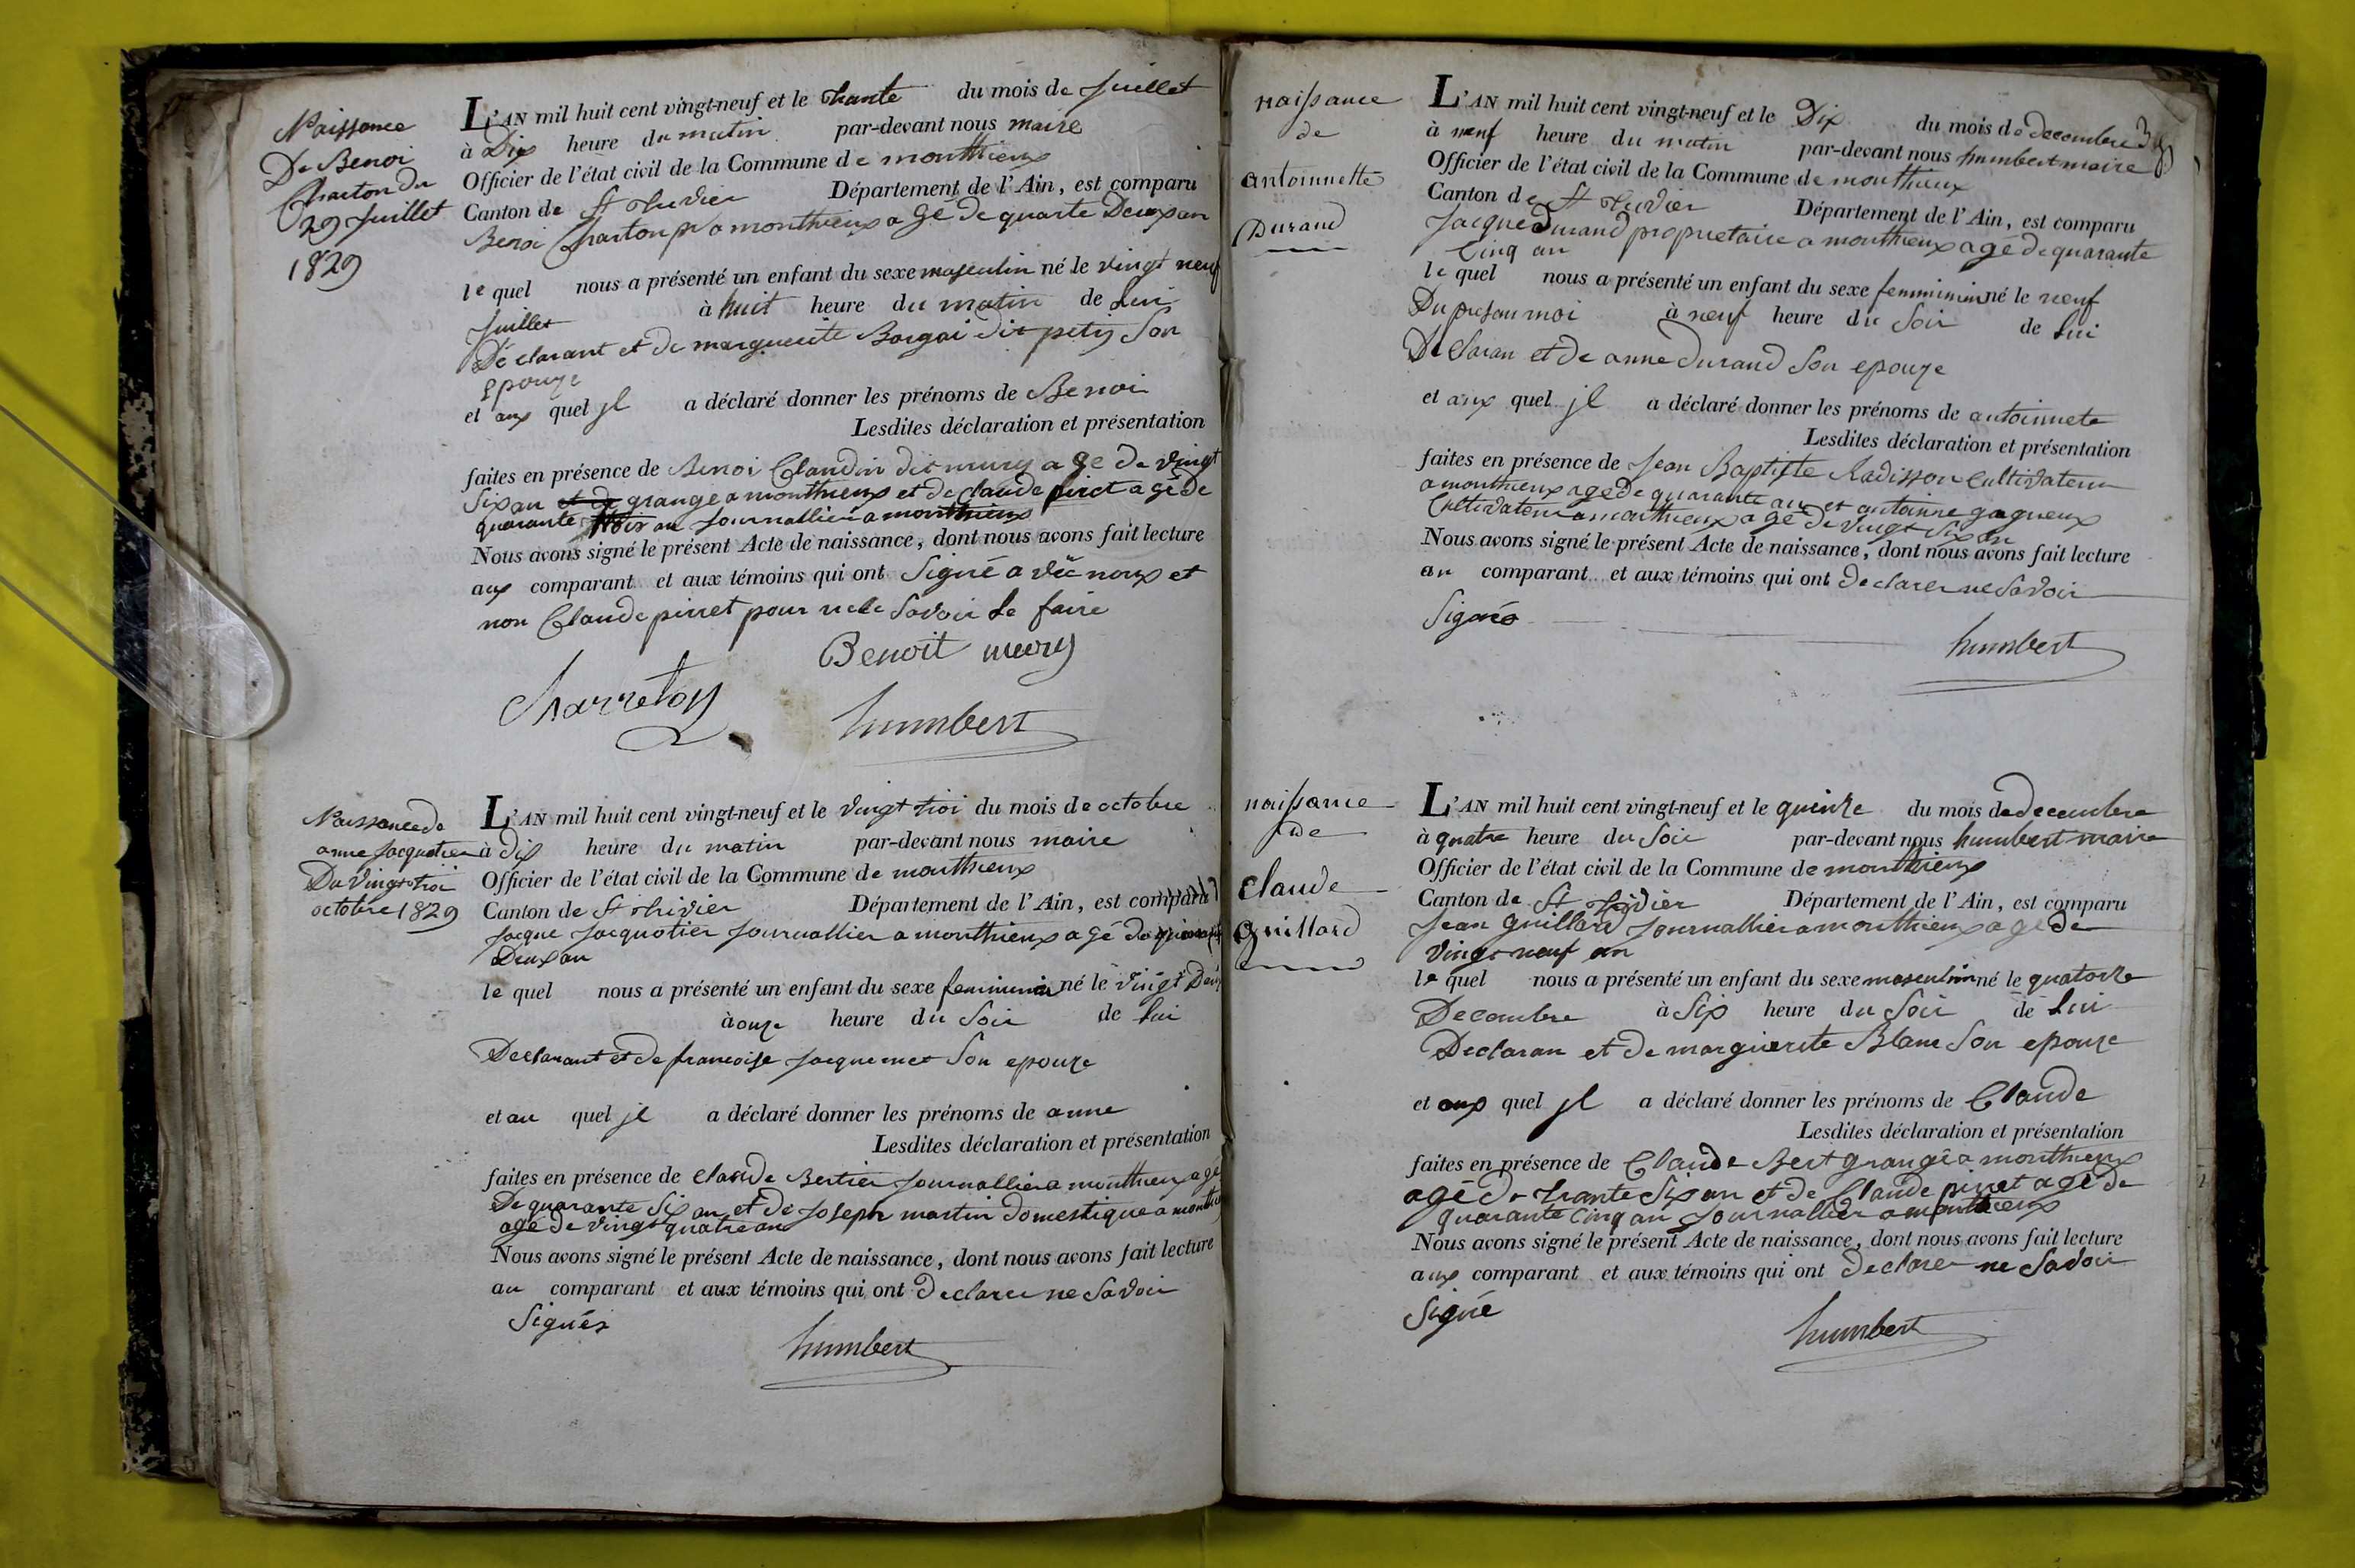 Naissance
De Benoi
Charton du
29 Juillet
1829
L'AN mil huit cent vingt-neuf et le trante du mois de Juillet
à Dix heure du matin par-devant nous maire
Officier de l'état civil de la Commune de monthieux
Canton de St trivier Département de l'Ain, est comparu
Benoi Charton pr a monthieux agé de quarte Deux an
le quel nous a présenté un enfant du sexe masculin né le vingt neuf
Juillet à huit heure du matin de Lui
Déclarant et de marguerite Borgai dit petiy Son
Epouze
et aux quel jl a déclaré donner les prénoms de Benoi
Lesdites déclaration et présentation
faites en présence de Benoi Claudin dit mury agé de vingt
Six an et de grange a monthieux et de Claude piret agé de
quarante trois an Journallier a monthieux
Nous avons signé le présent Acte de naissance, dont nous avons fait lecture
aux comparant et aux témoins qui ont Signé a véc nous et
non Claude pirret pour nele Savoir Le faire
Benoit mury
Charreton
humbert
Naissance de
anne Jacquotier
Du vingt troi
octobre 1829
L'AN mil huit cent vingt-neuf et le vingt troi du mois de octobre
à dix heure du matin par-devant nous maire
Officier de l'état civil de la Commune de monthieux
Canton de St trivier Département de l'Ain, est comparu
Jacque Jacquotier Journallier a monthieux agé de
Deux an
le quel nous a présenté un enfant du sexe feminin né le vingt Deux
à onze heure du Soir de Lui
Declarant et de francoise Jacquemet Son epouze
et au quel jl a déclaré donner les prénoms de anne
Lesdites déclaration et présentation
faites en présence de claude Bertier Journallier a monthieux agé
De quarante Six an et de Joseph martin domestique a
agé de vingt quatre an
Nous avons signé le présent Acte de naissance, dont nous avons fait lecture
au comparant et aux témoins qui ont declarer ne Savoir
Signés
humbert
naissance
de
antoinnette
Durand
L'AN mil huit cent vingt-neuf et le Dix du mois de decembre
à neuf heure du matin par-devant nous humbert maire
Officier de l'état civil de la Commune de monthieux
Canton de St trivier Département de l'Ain, est comparu
Jacque Durand proprietaire a monthieux agé de quarante
Cinq an
le quel nous a présenté un enfant du sexe femminin né le neuf
Du presan moi à neuf heure du Soir de Lui
De Claran et de anne Durand Son epouze
et aux quel jl a déclaré donner les prénoms de antoinnete
Lesdites déclaration et présentation
faites en présence de Jean Baptiste Radisson Cultivateur
a monthieux agé de quarante an et antoinne gagneux
Cultivateur a monthieux agé de vingt Six an
Nous avons signé le présent Acte de naissance, dont nous avons fait lecture
au comparant et aux témoins qui ont declarer ne Savoir
Signés
humbert
naissance
de
Claude
Guillard
L'AN mil huit cent vingt-neuf et le quinze du mois de decembre
à quatre heure du Soir par-devant nous humbert maire
Officier de l'état civil de la Commune de monthieux
Canton de St trivier Département de l'Ain, est comparu
Jean Guillard Journallier a monthieux agé de
vingt neuf an
le quel nous a présenté un enfant du sexe masculin né le quatorze
Decembre à Six heure du Soir de Lui
Declaran et de marguerite Blanc Son epouze
et aux quel jl a déclaré donner les prénoms de Claude
Lesdites déclaration et présentation
faites en présence de Claude Bert grangé a monthieux
agé de trante Six an et de Claude pirret agé de
quarante Cinq an Journallier a monthieux
Nous avons signé le présent Acte de naissance, dont nous avons fait lecture
aux comparant et aux témoins qui ont declarer ne Savoir
Signé
humbert